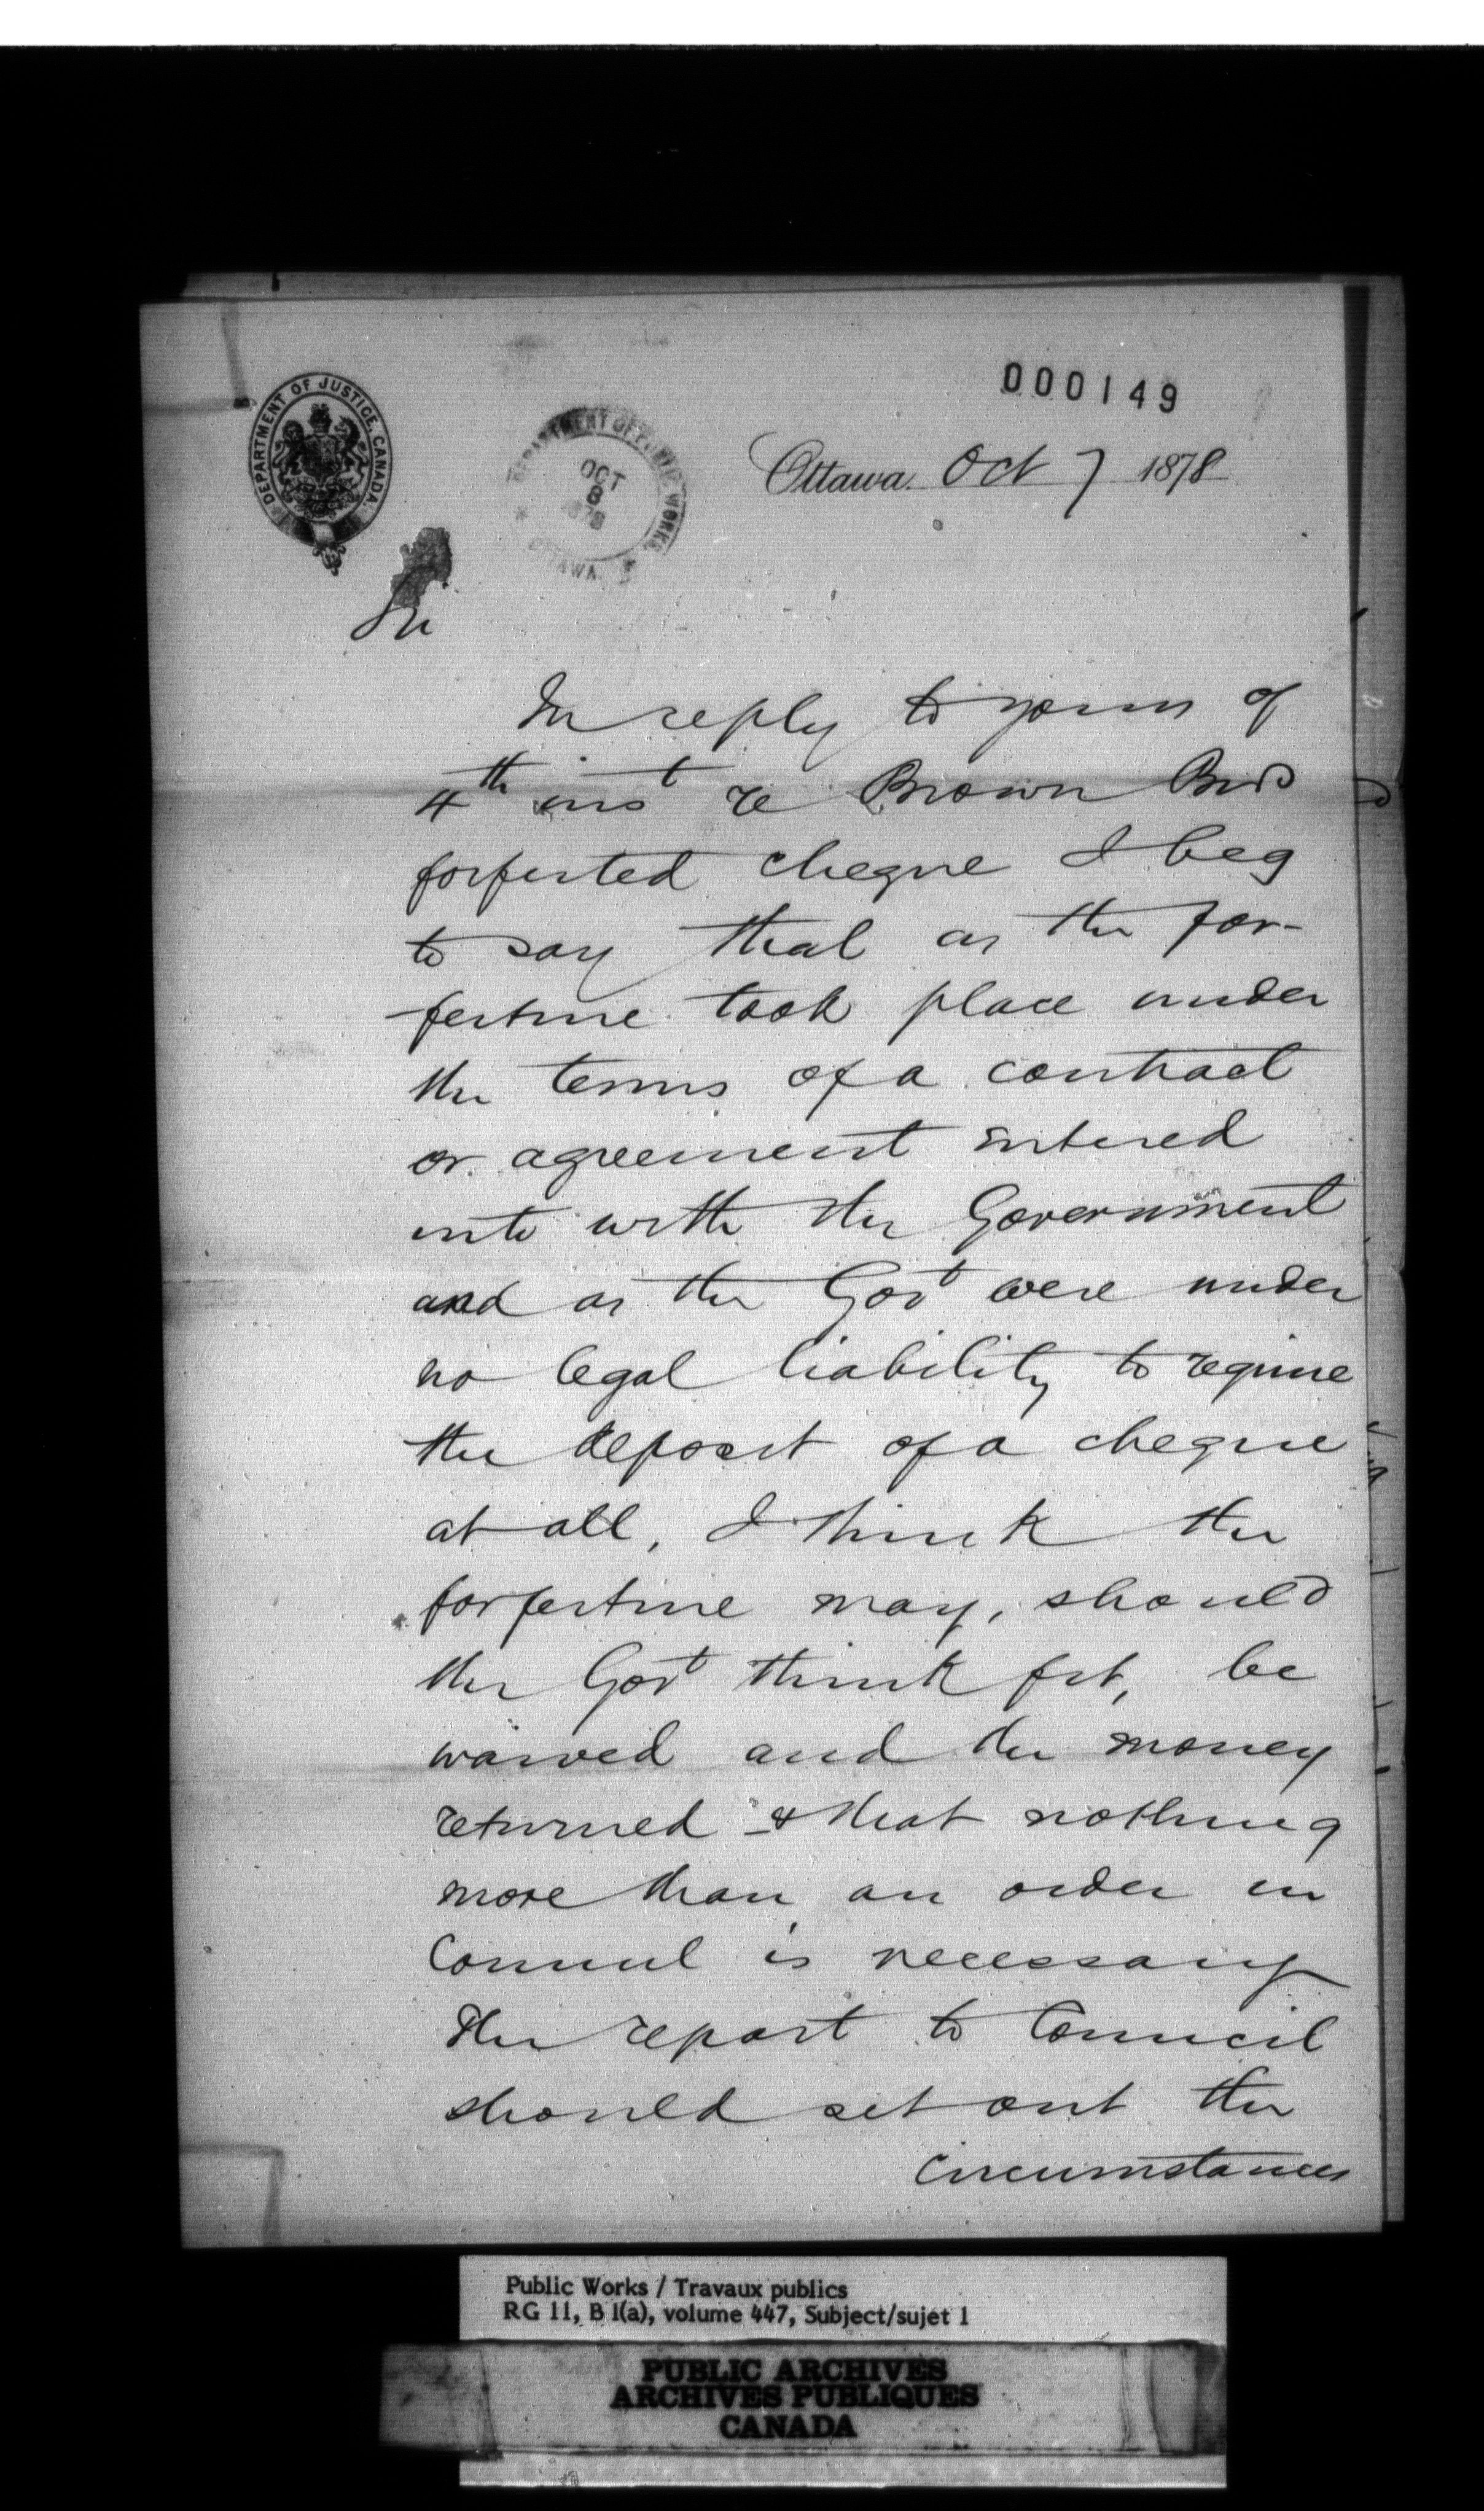 000149
DEPARTMENT OF JUSTICE, CANADA.
DEPARTMENT OF PUBLIC WORKS
OCT
8
1878
OTTAWA
Ottawa Oct 7 1878
Sir
In reply to yours of
4th inst re Brown Bros
forfeited cheque I beg
to say that as the for-
feiture took place under
the terms of a contract
or agreement entered
into with the Government
and as the Govt were under
no legal liability to require
the deposit of a cheque
at all, I think the
forfeiture may, should
the Govt think fit, be
waived and the money
returned & that nothing
more than an order in
Council is necessary
The report to Council
should set out the
circumstances
Public Works / Travaux publics
RG 11, B 1(a), volume 447, Subject/sujet 1
PUBLIC ARCHIVES
ARCHIVES PUBLIQUES
CANADA